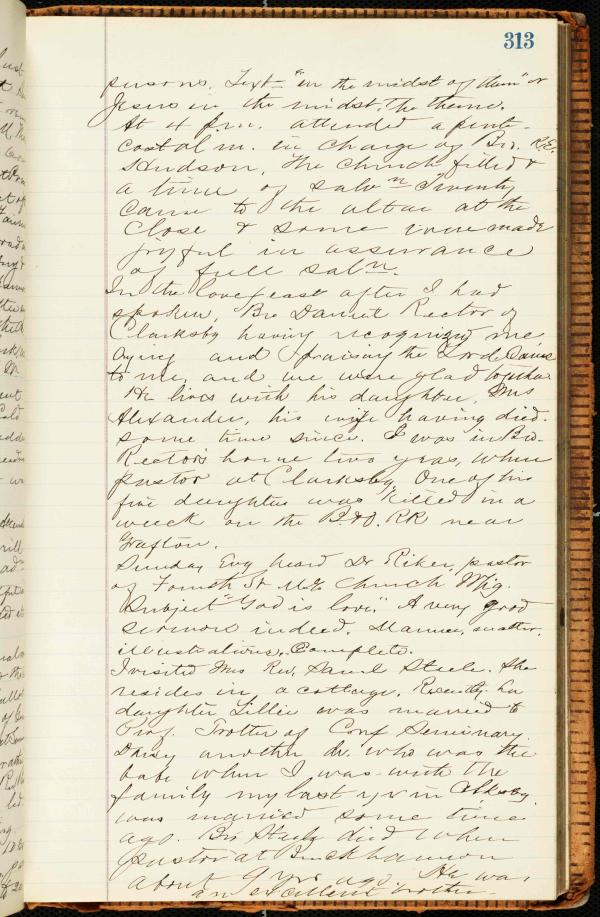 313
persons. Text - "in the midst of them" or
Jesus in the midst, the theme.
At 4 P.m. attended a pente-
costal m. in charge of Bro. R.E.
Hudson. The Church filled &
a time of salvn Twenty
came to the altar at the
close & some were made
joyful in assurance
of full saln.
In the lovefeast after I had
spoken, Bro Daniel Rector of
Clarksbg having recognized me
and praising the Lord came
to me, and we were glad together
He lives with his daughter, Mrs
Alexander, his wife having died
some time since. I was in Bro.
Rector's home two years, when
pastor at Clarksbg. One of his
five daughters was killed in a
wreck on the B.&O. RR near
Grafton.
Sunday Evg heard Dr Riker, pastor
of Fourth St M.E. Church Whg.
Subject "God is love." A very good
sermon indeed. Manner, matter,
illustrations, Complete.
I visited Mrs Rev. Saml Steele. She
resides in a cottage. Recently her
daughter Lillie was married to
Prof. Trotter of Conf Seminary.
Daisy another dr. who was the
babe when I was with the
family my last yr in
was married some time
ago. Bro Steele died when
pastor at Buckhannon
about 9 yrs ago. He was
an excellent brother.